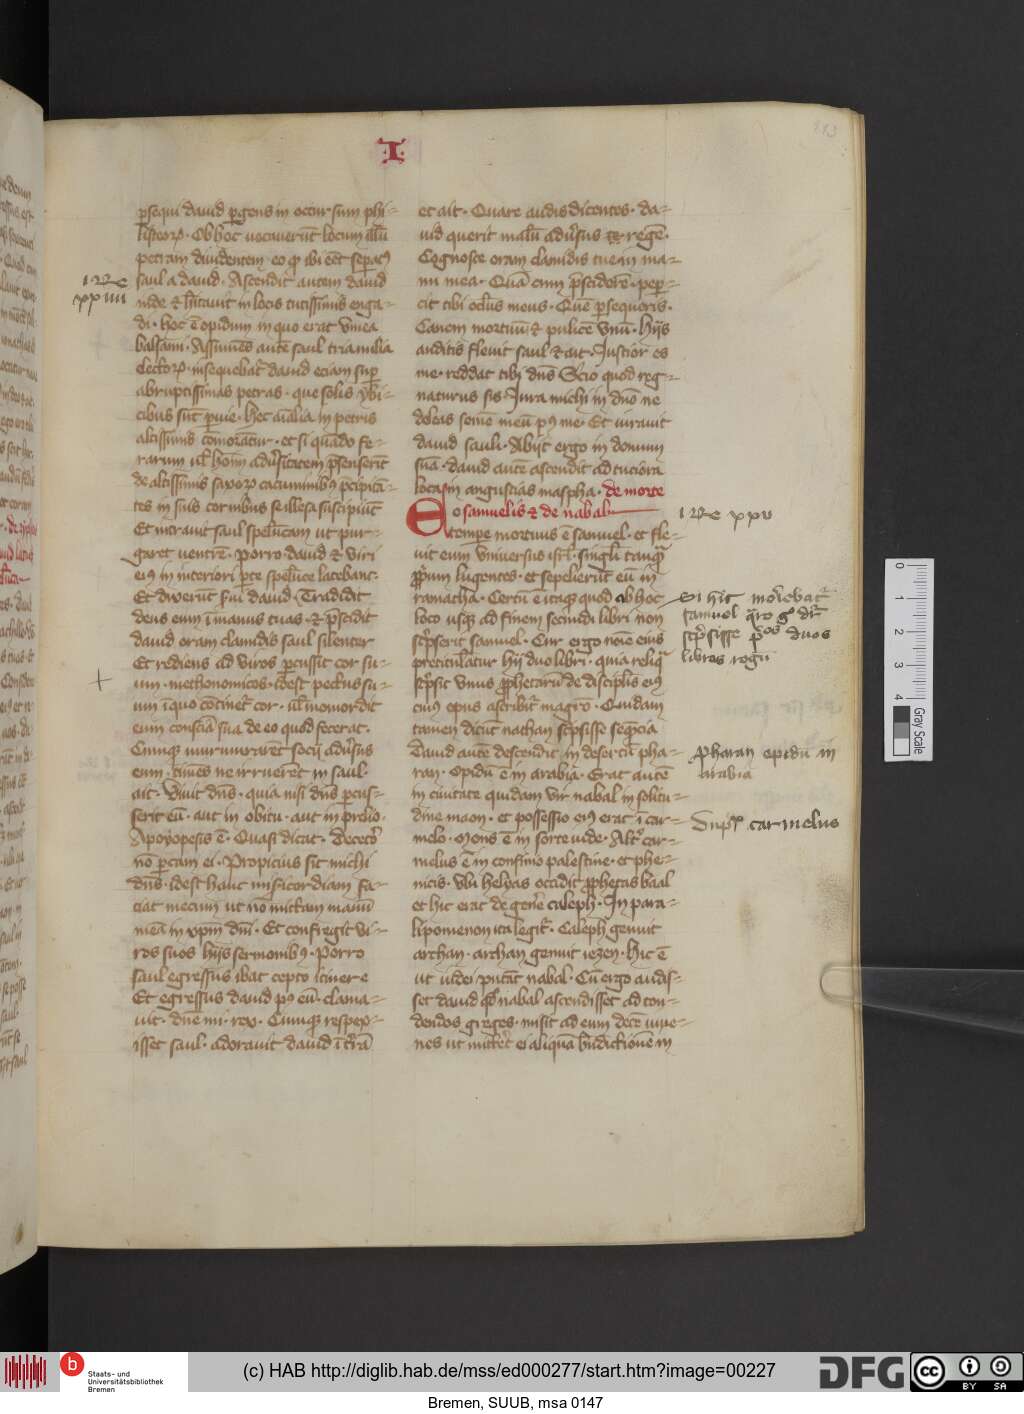 I
p̲sequi dauid p̲gens in occur sum phi-
listeoꝝ. Ob hoc uocauerūt locum illū
petram diuidentem eo qꝫ ibi eēt sepatꝰ
saul a dauid. Ascendit autem dauid
inde ⁊ hītauit in locis tutissimis enga-
di. hoc ē opidum in quo erat vinea
balsami. Assumēs autē saul tria milia
electoꝝ. insequebat᷑ dauid eciam sup̲
abruptissimas petras. que solis ybi-
cibus sūt p̲uie. hec aīalia in petris
altissimis cōmorātur. et si quādo fe-
rarum ul᷑ hoīm adūsitatem p̄senserīt
de altissimis saxoꝝ cacuminibꝰ p̄cipitā-
tes in suis cornibus se illesa suscipiūt
Et intrauit saul spelūcam ut pur-
garet uentrē. Porro dauid ⁊ viri
eiꝰ in interiori p̲te spelūce latebant.
Et dixerūt sui dauid. Tradidit
deus eum ī manus tuas. ⁊ p̄scidit
dauid oram clamidis saul silenter
Et rediens ad viros p̲cussit cor su-
um. methonomicos. idest pectus su-
um ī quo cōtinet᷑ cor. ul᷑ momordit
eum consciā sua de eo quod fecerat.
Cumqꝫ murmurarēt socij adūsus
eum. timēs ne irruerēt in saul.
ait. Viuit dn̄s. quia nisi dn̄s p̲cus-
serit eū. aut in obitu. aut in prelio.
Apoyopesis ē. Quasi dicat. Decet᷑o
nō p̲cam ei. Propicius sit michi
dn̄s. idest hanc misʼicordiam fa-
ciat mecum ut nō mittam manū
meā in xp̄m dn̄i. Et confregit vi-
ros suos hijs sermonibꝰ. Porro
saul egressus ibat cepto itinere
Et egressus dauid pꝰ eū. clama-
uit. dn̄e mi rex. Cumqꝫ respex-
isset saul. adorauit dauid ī t᷑rā
et ait. Quare audis dicentes. da-
uid querit malū adūsus te regē.
Cognosce oram clamidis tueī ma-
nu mea. Quā cum p̄sciderē. pep̲-
cit tibi oclʼus meus. Quē p̲sequeris.
Canem mortuū ⁊ pulicē vnū. Hijs
auditis fleuit saul ⁊ ait. Iustior es
me. reddat tibi dn̄s Scio quod reg-
naturus sis. Iura michi in dn̄o ne
deleas semē meū pꝰ me. Et iurauit
dauid sauli. Abijt ergo in domum
suā. dauid autē ascendit ad tuciora
loca in angustias maspha. de morte
samuelis ⁊ de nabal
Eo tempe mortuus ē samuel. et fle-
uit eum vniuersus isrl̄. singlʼi tanqͣ
p̲p̄ium lugentes. et sepelierūt eū in
ramatha. Certū ē itaqꝫ quod ab hoc
loco usqꝫ ad finem secundi libri non
scpʼserit samuel. Cur ergo noīe eius
preticulātur hij duo libri. quia reliqͣ
scpʼsit vnus p̲phetarū de discipulis eiꝰ
cuiꝰ opus ascribit᷑ magr̄o. Quidam
tamen dicūt nathan scpʼsisse seqūcia
Dauid autē descendit in desertū pha-
ran. Opidū ē in arabia. Erat autē
in ciuitate quidam vir nabal in solitu-
dine maon. et possessio eiꝰ erat ī car-
melo. Mons ē in sorte iude. Alt᷑ car-
melus ē in confinio palestine. et phe-
nicis. vbi helyas occidit p̲phetas baal
et hic erat de gen̄e caleph. In para-
lipomenon ita legit᷑. Caleph genuit
archan. archan genuit iezen. Hic ē
ut iudei putāt nabal. Cū ergo audis-
set dauid qd̄ nabal ascendisset ad ton-
dendos greges. misit ad eum decē iuue-
nes ut mitt᷑et ei aliquā bn̄dictionē in
1 Re
xxiiii
1 Re xxv
Si hic moriebat᷑
samuel q̄ro gͦ dr̄
scpʼsisse p̄os duos
libros regū
Pharan opidū in
arabia
Duplʼ carmelus
0
1
2
3
4
Gray Scale
Staats- und
Universitätsbibliothek
Bremen
(c) HAB http://diglib.hab.de/mss/ed000277/start.htm?image=00227
DFG
cc
BY SA
Bremen, SUUB, msa 0147